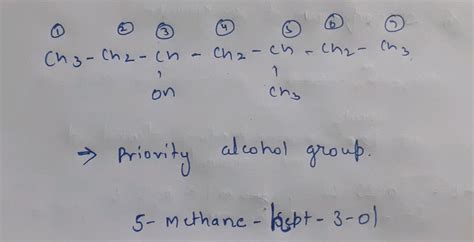 ① ② ③ ④ ⑤ ⑥ ⑦
CH3 - CH2 - CH - CH2 - CH - CH2 - CH3
OH CH3
→ Priority alcohol group.
5 - Methane - hept - 3 - ol